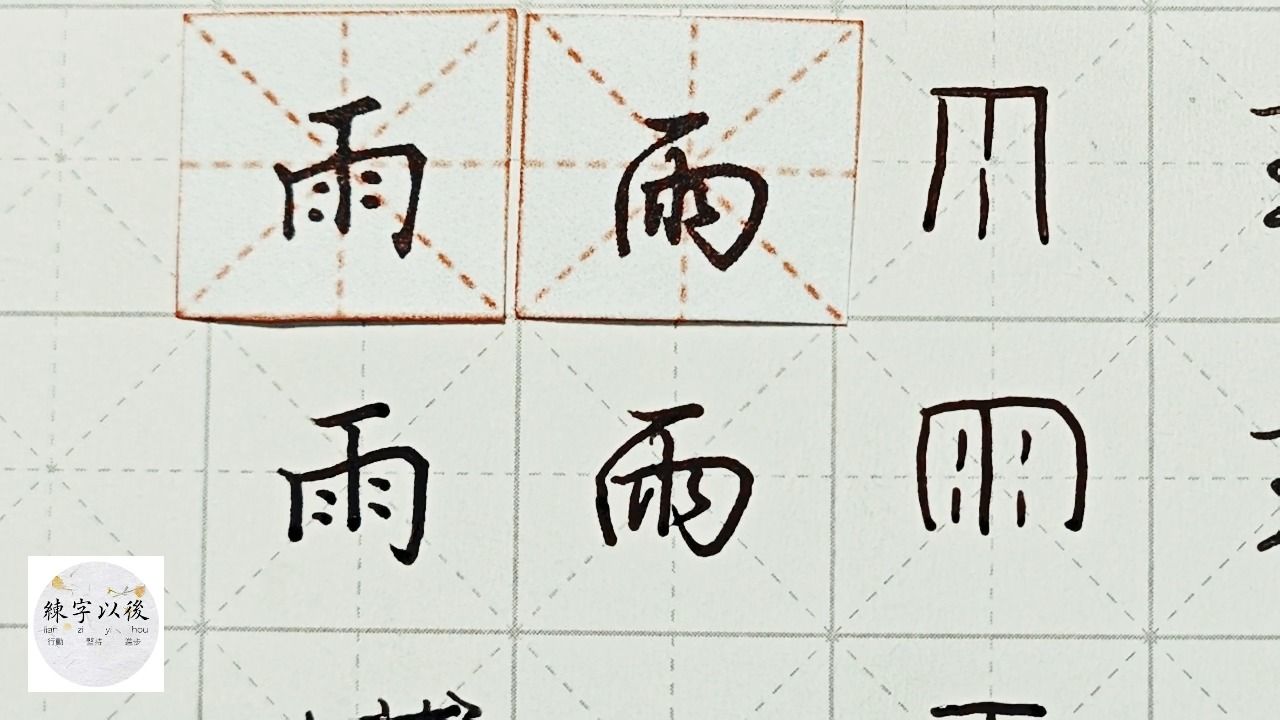 雨 雨 雨
雨 雨 雨
練字以後
lian zi yi hou
行動 堅持 進步